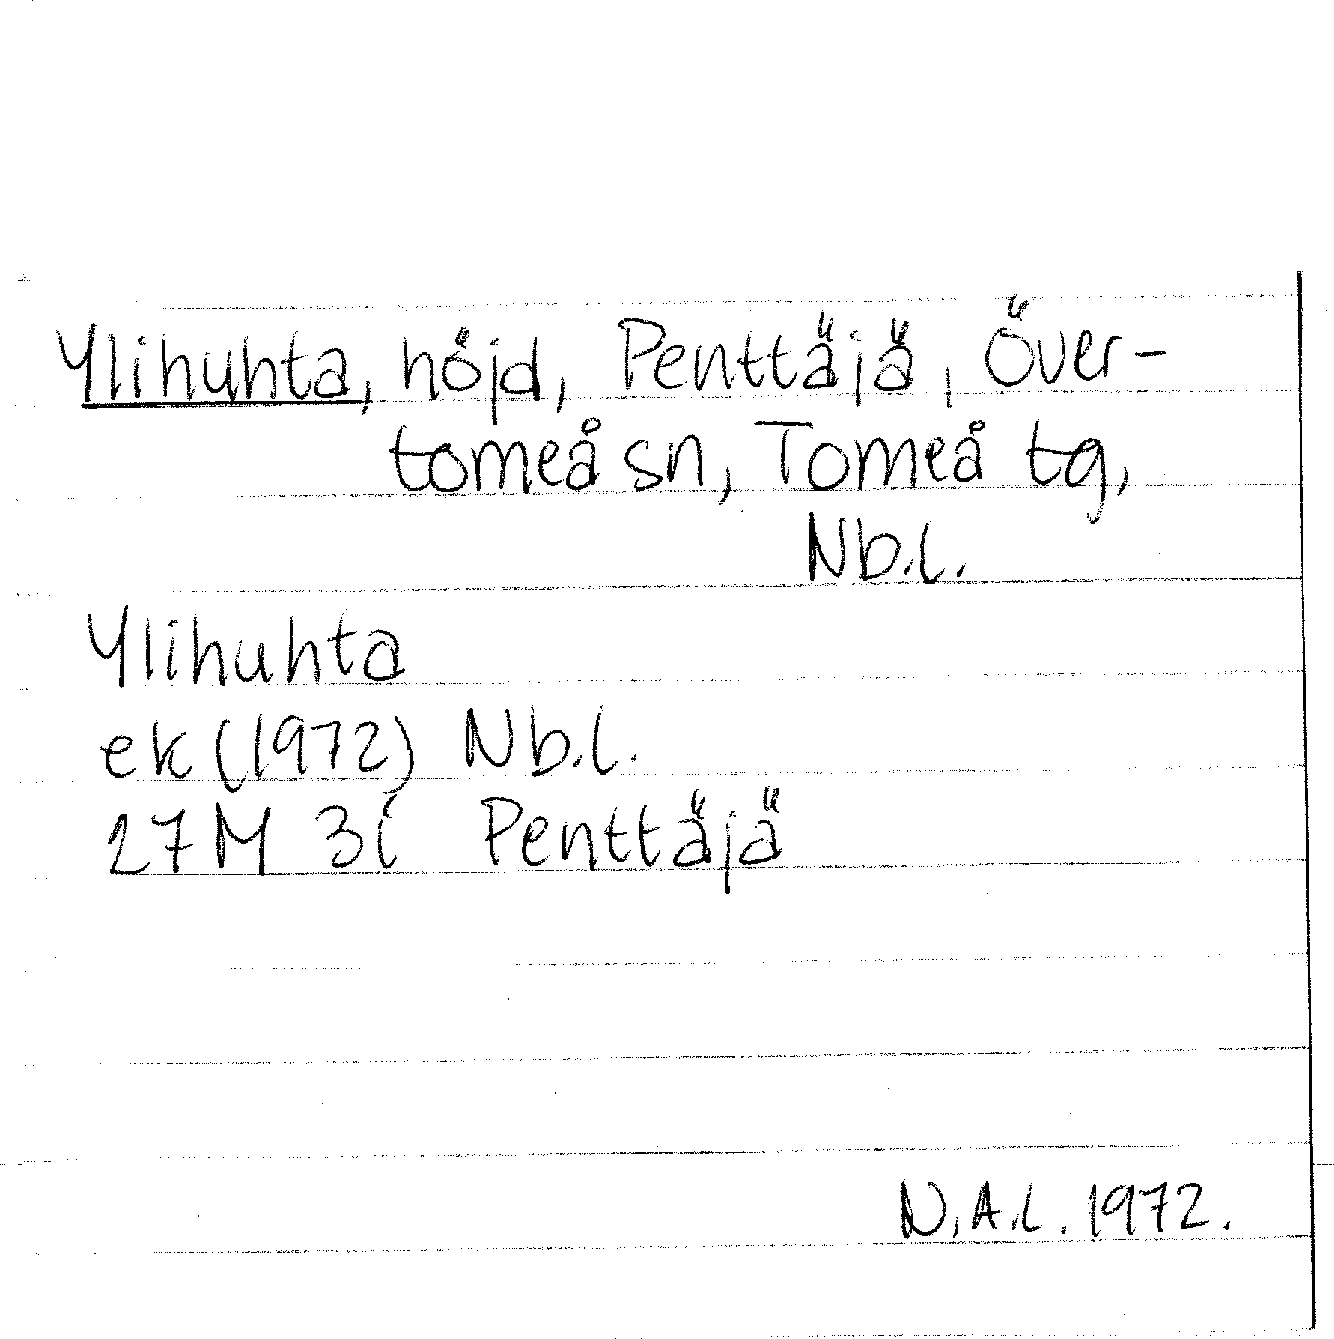 Ylihuhta, höjd, Penttäjä, Över-
torneå sn, Torneå tg,
Nb.l.
Ylihuhta
ek (1972) Nb.l.
27M 3i Penttäjä
N.A.L. 1972.